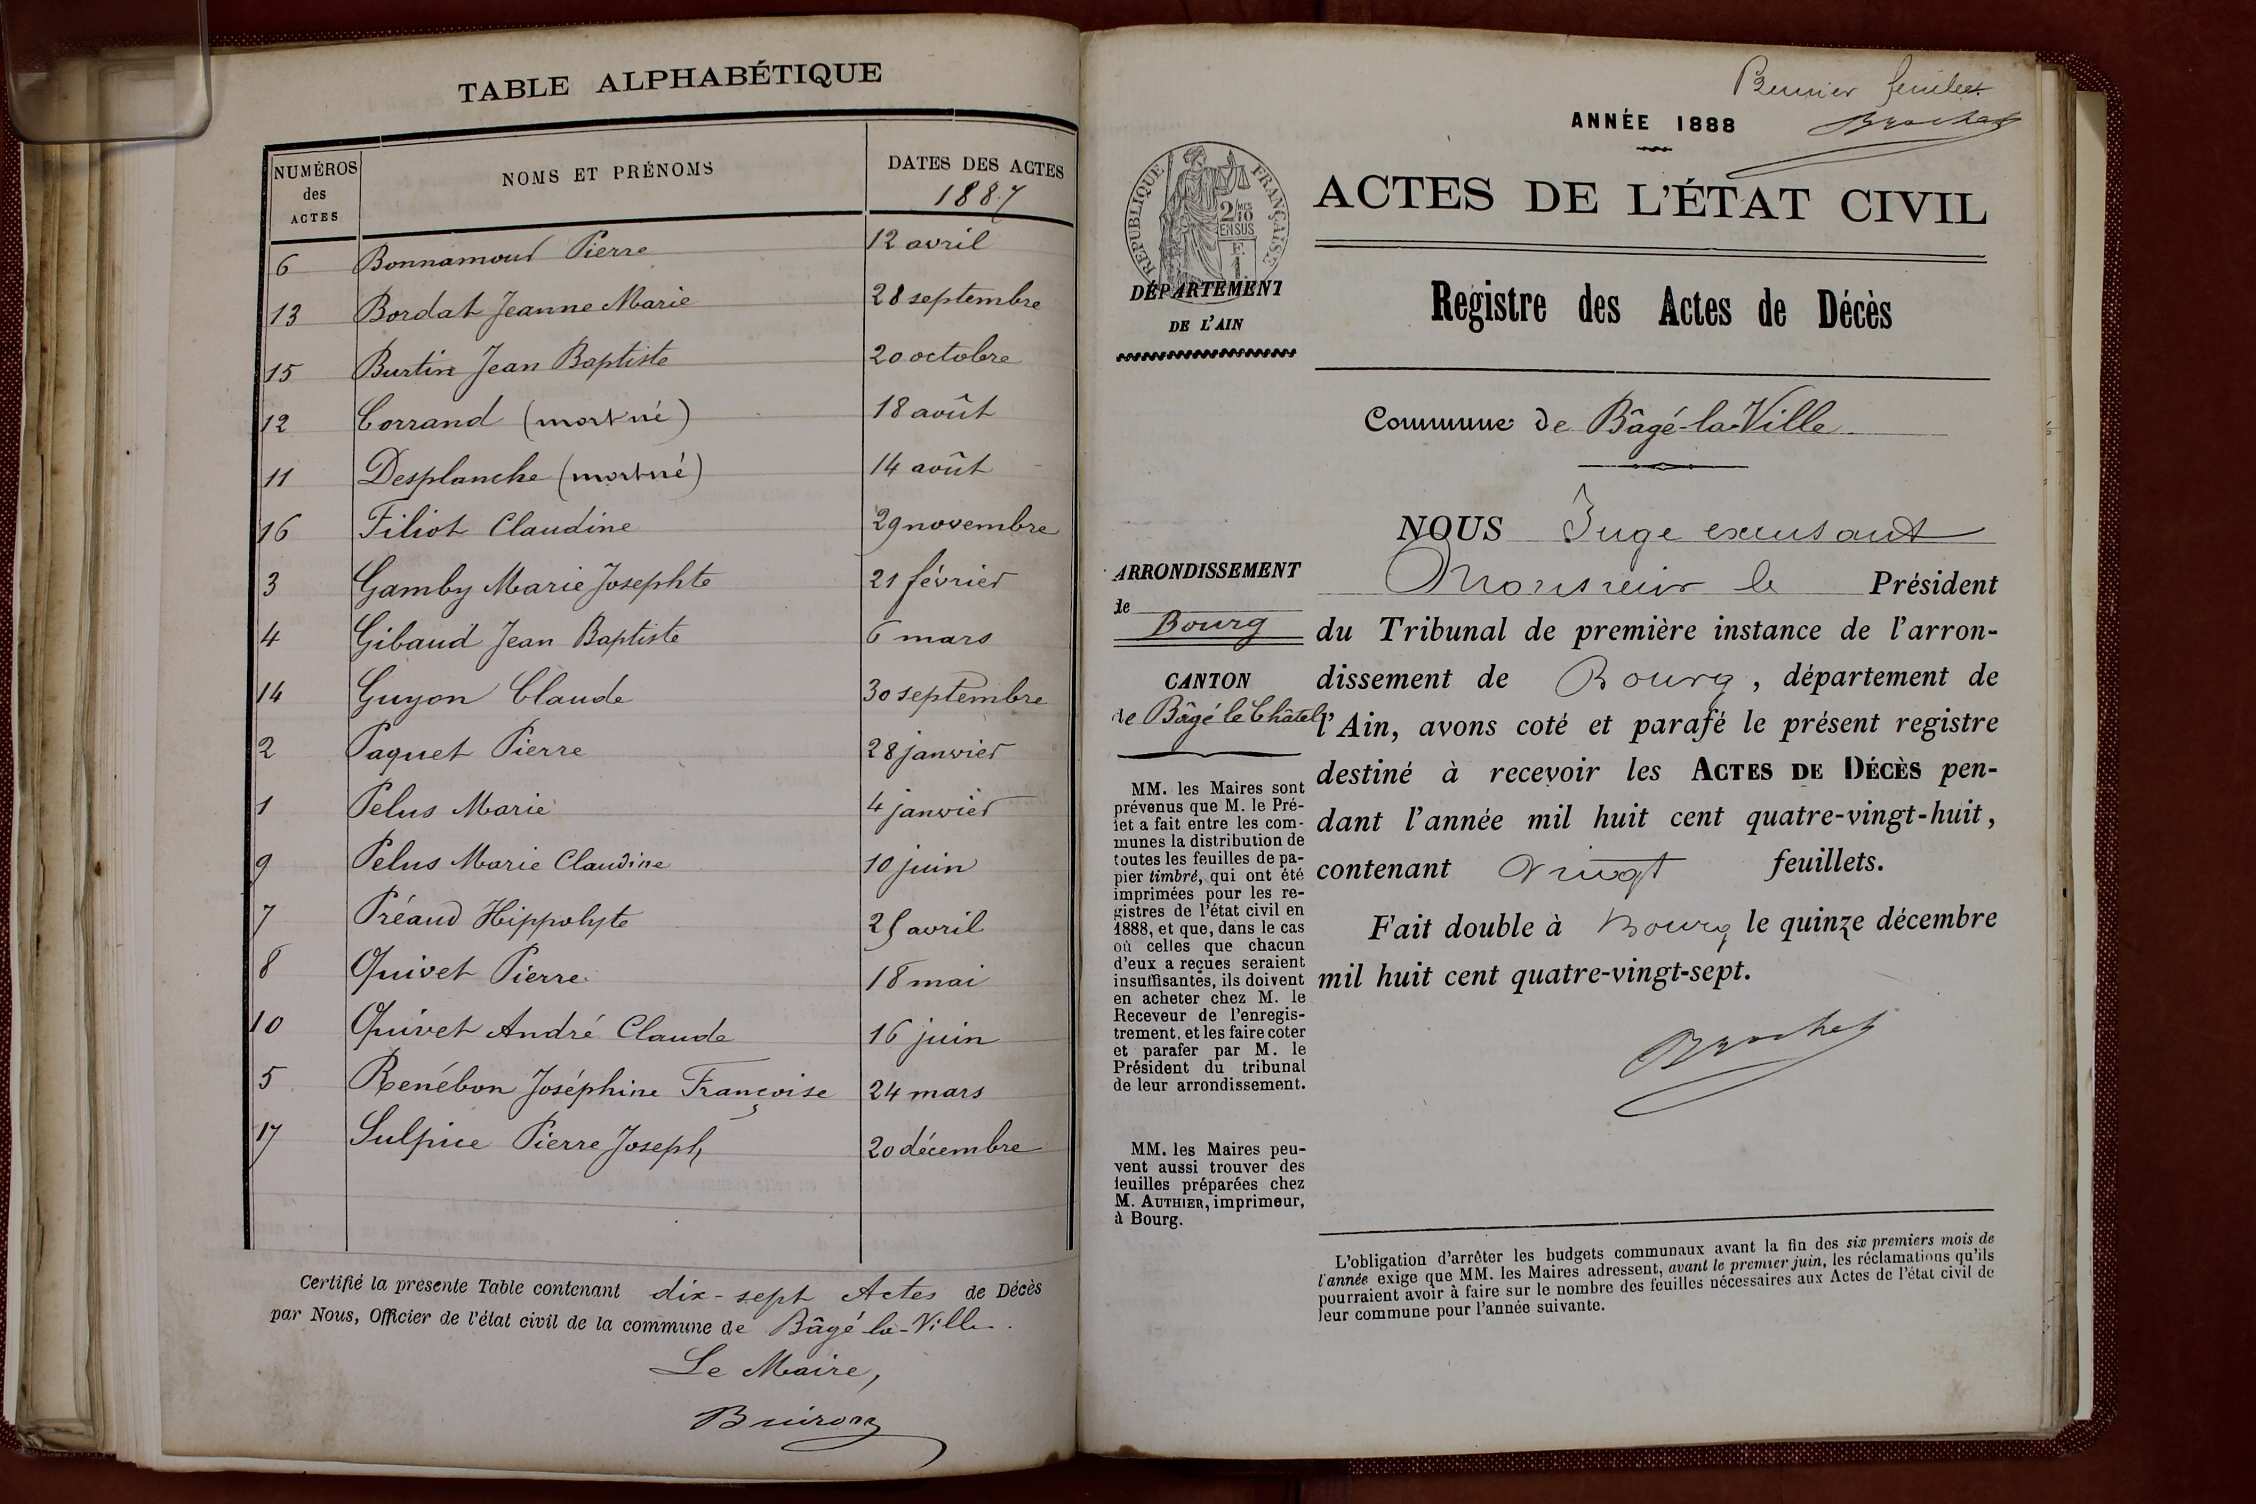 TABLE ALPHABÉTIQUE
NUMÉROS des ACTES
NOMS ET PRÉNOMS
DATES DES ACTES
1887
6 Bonnamour Pierre 12 avril
13 Bordat Jeanne Marie 28 septembre
15 Burtin Jean Baptiste 20 octobre
12 Corrand (mort né) 18 août
11 Desplanche (mort né) 14 août
16 Filiot Claudine 29 novembre
3 Gamby Marie Josephte 21 février
4 Gibaud Jean Baptiste 6 mars
14 Guyon Claude 30 septembre
2 Paquet Pierre 28 janvier
1 Pelus Marie 4 janvier
9 Pelus Marie Claudine 10 juin
7 Préaud Hippolyte 25 avril
8 Quivet Pierre 18 mai
10 Quivet André Claude 16 juin
5 Renébon Joséphine Françoise 24 mars
17 Sulpice Pierre Joseph 20 décembre
Certifié la présente Table contenant dix-sept Actes de Décès
par Nous, Officier de l'état civil de la commune de Bâgé-la-Ville.
Le Maire,
Buiron
feuillet
Brochet
ANNÉE 1888
RÉPUBLIQUE FRANÇAISE
2/10MES
EN SUS
F.
1.
ACTES DE L'ÉTAT CIVIL
DÉPARTEMENT
DE L'AIN
Registre des Actes de Décès
Commune de Bâgé-la-Ville
ARRONDISSEMENT
de
Bourg
CANTON
de Bâgé le Châtel
MM. les Maires sont
prévenus que M. le Pré-
fet a fait entre les com-
munes la distribution de
toutes les feuilles de pa-
pier timbré, qui ont été
imprimées pour les re-
gistres de l'état civil en
1888, et que, dans le cas
où celles que chacun
d'eux a reçues seraient
insuffisantes, ils doivent
en acheter chez M. le
Receveur de l'enregis-
trement, et les faire coter
et parafer par M. le
Président du tribunal
de leur arrondissement.
MM. les Maires peu-
vent aussi trouver des
feuilles préparées chez
M. AUTHIER, imprimeur,
à Bourg.
NOUS Juge excusant
Monsieur le Président
du Tribunal de première instance de l'arron-
dissement de Bourg, département de
l'Ain, avons coté et parafé le présent registre
destiné à recevoir les ACTES DE DÉCÈS pen-
dant l'année mil huit cent quatre-vingt-huit,
contenant vingt feuillets.
Fait double à Bourg le quinze décembre
mil huit cent quatre-vingt-sept.
Brochet
L'obligation d'arrêter les budgets communaux avant la fin des six premiers mois de
l'année exige que MM. les Maires adressent, avant le premier juin, les réclamations qu'ils
pourraient avoir à faire sur le nombre des feuilles nécessaires aux Actes de l'état civil de
leur commune pour l'année suivante.